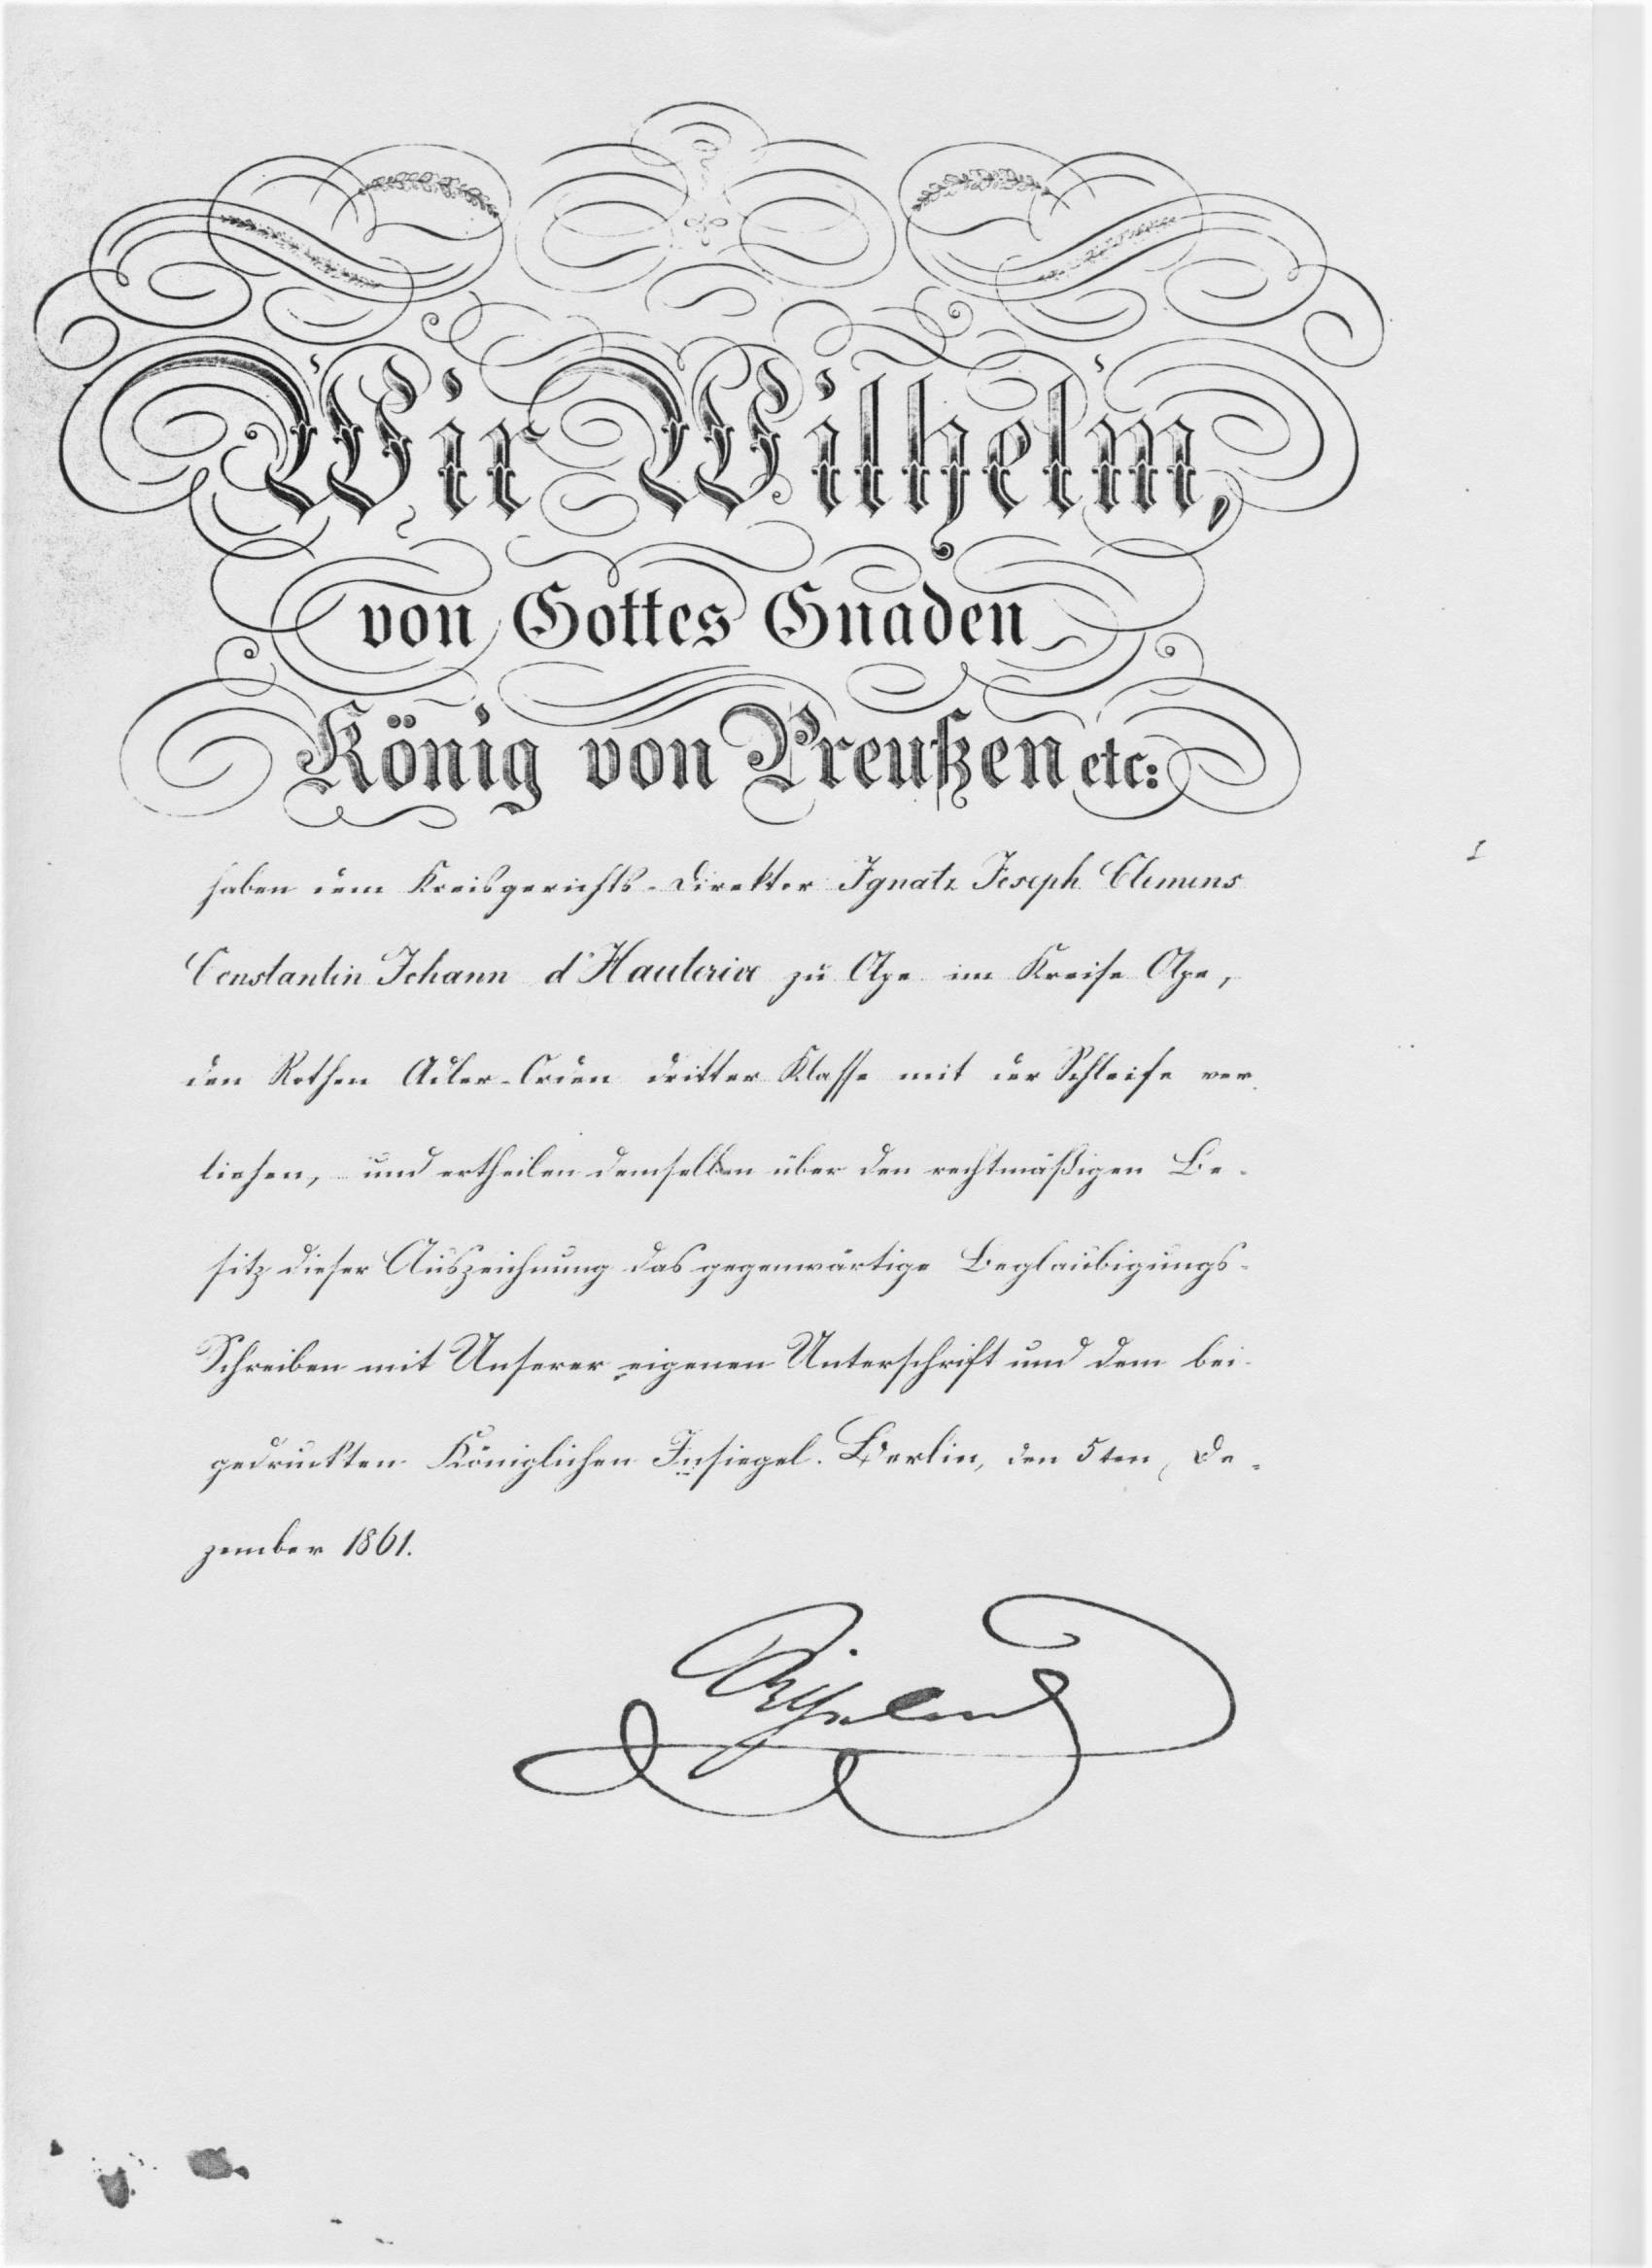 Wir Wilhelm,
von Gottes Gnaden
König von Preußen etc:
haben dem Kreisgerichts-Direktor Ignatz Joseph Clemens
Constantin Johann d'Hauterive zu Olpe im Kreise Olpe,
den Rothen Adler-Orden dritter Klasse mit der Schleife ver-
liehen, und ertheilen demselben über den rechtmäßigen Be-
sitz dieser Auszeichnung das gegenwärtige Beglaubigungs-
Schreiben mit Unserer eigenen Unterschrift und dem bei-
gedruckten Königlichen Insiegel. Berlin, den 5ten De-
zember 1861.
Wilhelm